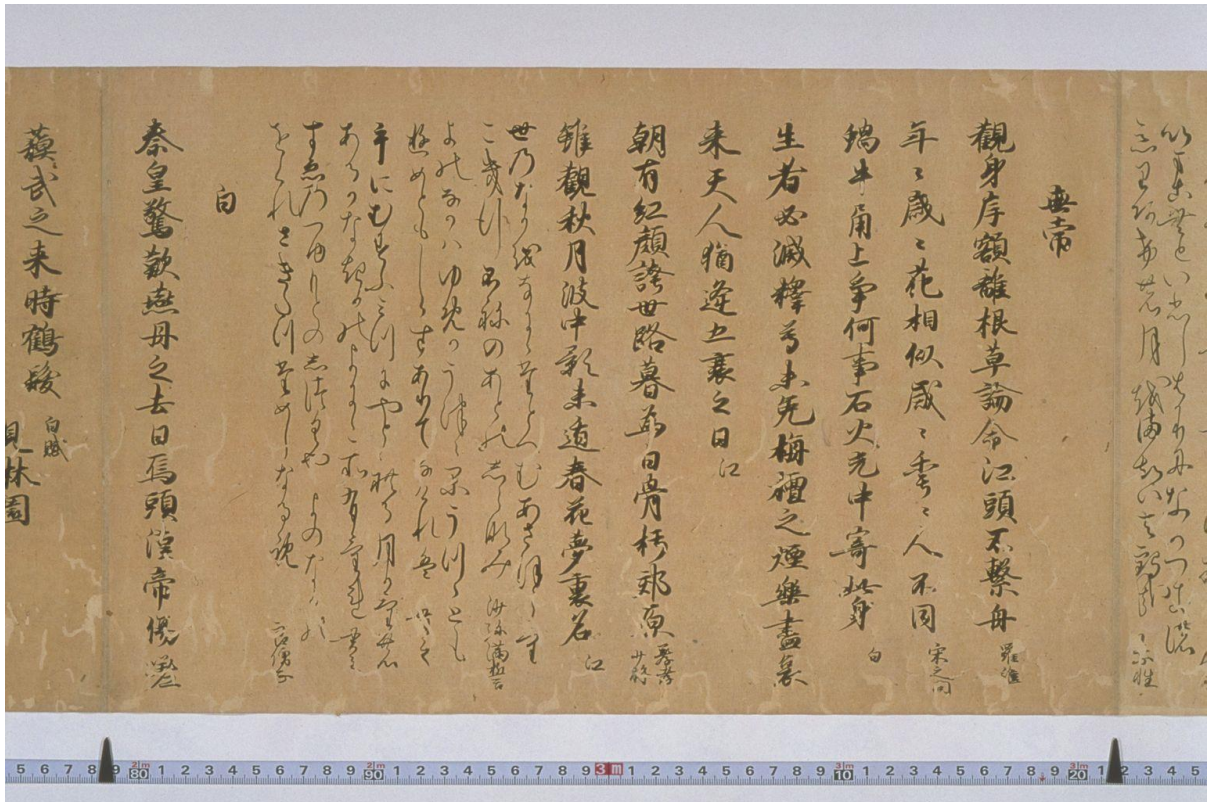 無常
觀身岸額離根草論命江頭不繫舟 羅維
年〻歳〻花相似歳〻年〻人不同 宋之問
蝸牛角上爭何事石火光中寄此身 白
生者必滅釋尊未免栴檀之煙樂盡哀
来天人猶逢五衰之日 江
朝有紅顔誇世路暮為白骨朽郊原 義孝少将
雖觀秋月波中影未遁春花夢裏名 江
世乃なか越なに尓たとへむあさほらけ
こき行不祢のあとのしらなみ 沙弥満誓
よのなかハゆめかうつゝかうつゝとも
ゆめともしらすありてなけれは
手にむすふみつにやとれる月かけの
あるかなきかのよにこそ有けれ 貫之
すゑ乃つゆもとのしつくやよのなかの
をくれさきたつためしなるらん
白
秦皇驚歎燕丹之去日烏頭漢帝傷嗟
蘇武之来時鶴髪 白賦